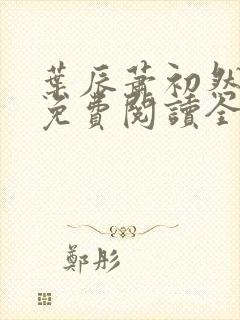 葉辰蕭初然
免費閱讀全
鄭彤